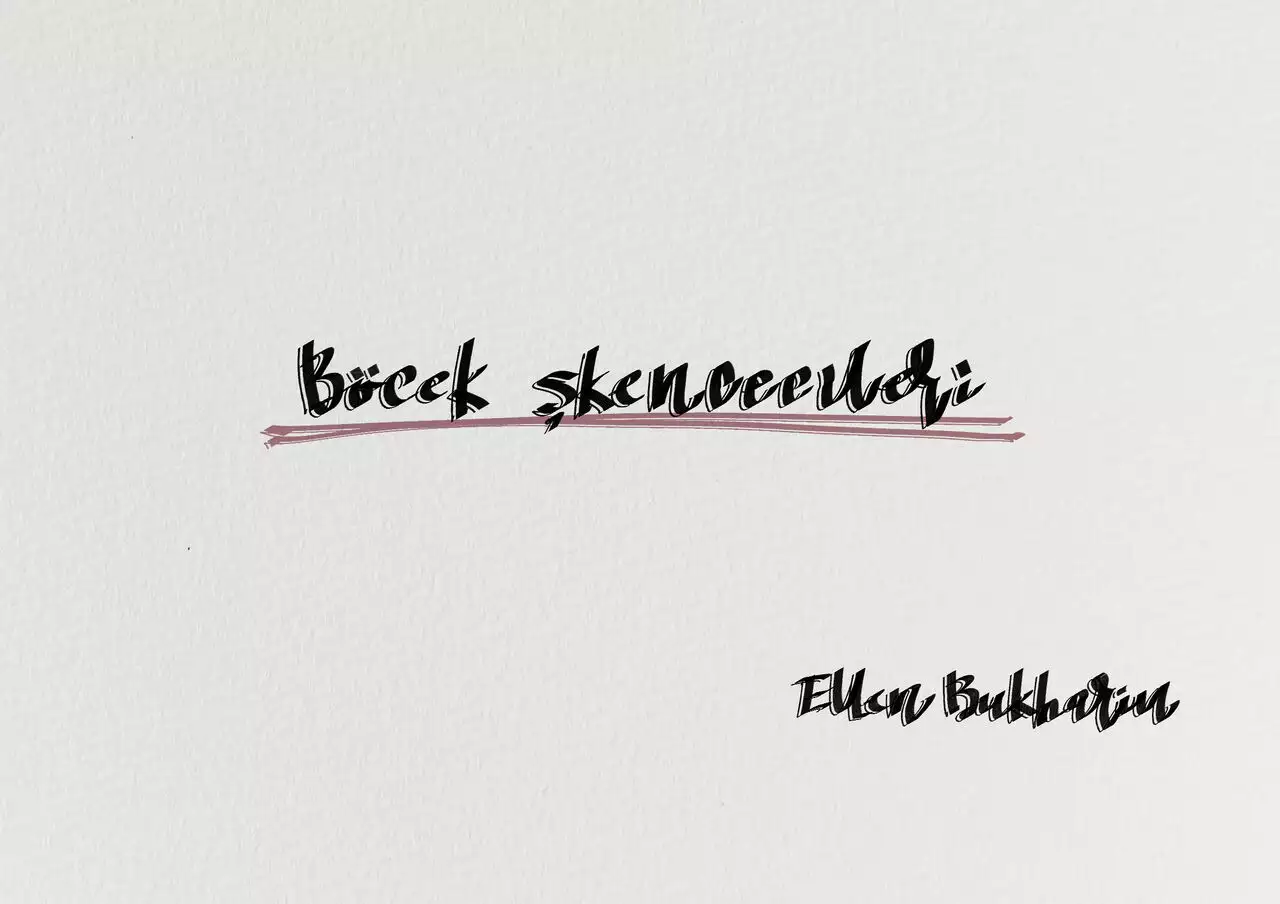 Böcek şkenceevleri
Ellen Bukharin